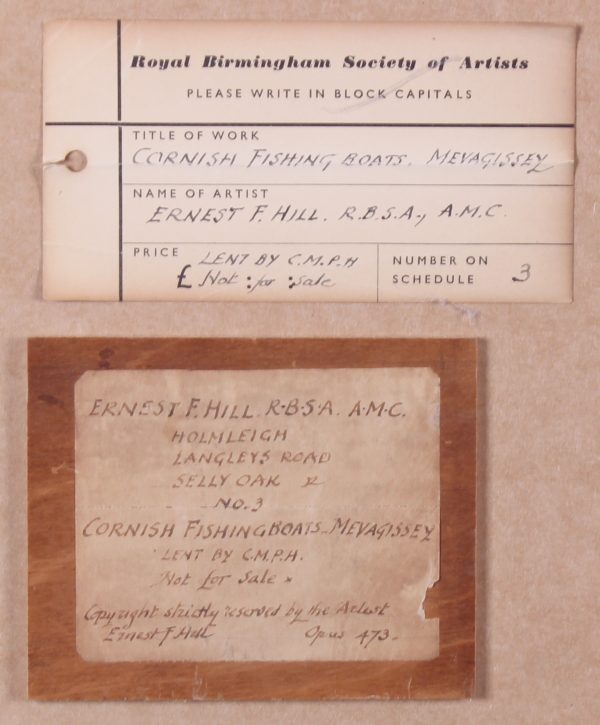 Royal Birmingham Society of Artists
PLEASE WRITE IN BLOCK CAPITALS
TITLE OF WORK
CORNISH FISHING BOATS. MEVAGISSEY
NAME OF ARTIST
ERNEST F. HILL. R.B.S.A., A.M.C.
PRICE
LENT BY C.M.P.H
£ Not : for : Sale
NUMBER ON
SCHEDULE
3
ERNEST F. HILL. R.B.S.A. A.M.C.
HOLMLEIGH
LANGLEYS ROAD
SELLY OAK
NO. 3
CORNISH FISHING BOATS. MEVAGISSEY
LENT BY C.M.P.H.
Not for Sale
Copyright strictly reserved by the Artist
Ernest F Hill Opus 473.